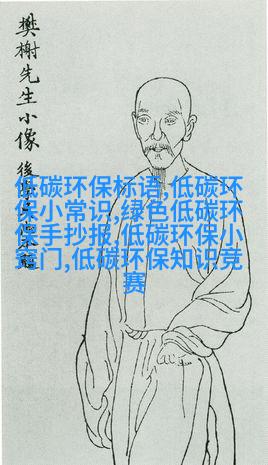 樊榭先生小像
後
低碳环保标语,低碳环
保小常识,绿色低碳环
保手抄报,低碳环保小
窍门,低碳环保知识竞
赛